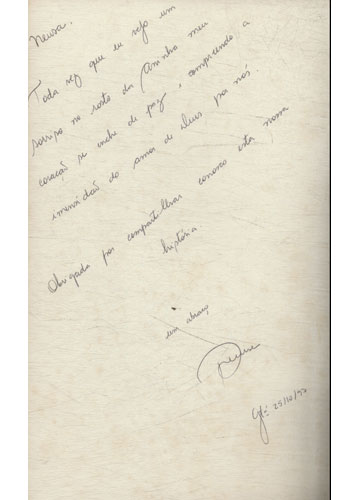 Neusa.
Toda vez que eu vejo um
sorriso no rosto da Aninha meu
coração se enche de paz e compreendo a
imensidão do amor de Deus por nós.
Obrigada por compartilhar conosco esta nossa
história
um abraço
25/10/92